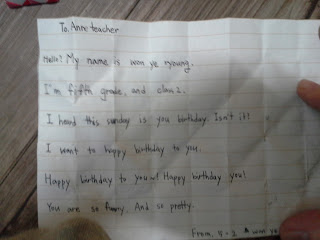 To. Anne teacher
Hello? My name is won ye ryoung.
I'm fifth grade, and class 2.
I heard this sunday is you birthday. Isn't it?
I want to happy birthday to you.
Happy birthday to you~! Happy birthday you!
You are so funny. And so pretty.
From. 5-2 won ye